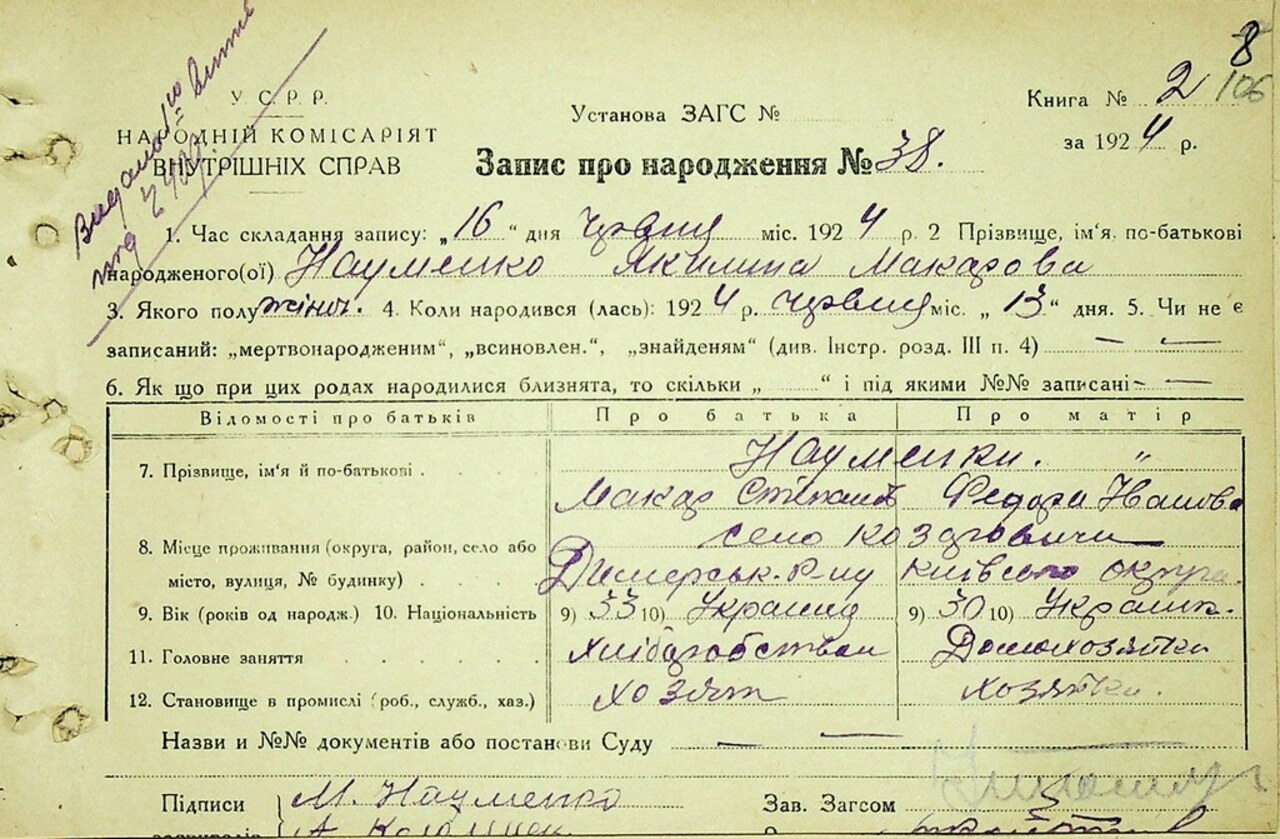 8
106
Видано
У. С. Р. Р.
НАРОДНІЙ КОМІСАРІЯТ
ВНУТРІШНІХ СПРАВ
Установа ЗАГС №
Книга № 2
за 1924 р.
Запис про народження № 38.
1. Час складання запису: „16“ дня червня міс. 1924 р. 2 Прізвище, ім'я. по-батькові
народженого(ої) Науменко Якилина Макарова
3. Якого полу жіноч. 4. Коли народився (лась): 1924 р. червня міс. „13“ дня. 5. Чи не є
записаний: „мертвонародженим“, „всиновлен.“, „знайденям“ (див. Інстр. розд. III п. 4) — —
6. Як що при цих родах народилися близнята, то скільки „ “ і під якими №№ записані - —
Відомості про батьків Про батька Про матір
7. Прізвище, ім'я й по-батькові Науменки. "
Макар Степанів Федора Іванова
8. Місце проживання (округа, район, село або село Казаровичи
місто, вулиця, № будинку) Димерськ. р-ну Київсього округа.
9. Вік (років од народж.) 10. Національність 9) 33 10) Украинц 9) 30 10) Украинк.
11. Головне заняття хлібаробством Домохозяйки
12. Становище в промислі (роб., служб., хаз.) хозяїн хозяйки.
Назви и №№ документів або постанови Суду — —
Підписи М. Науменко Зав. Загсом
А.